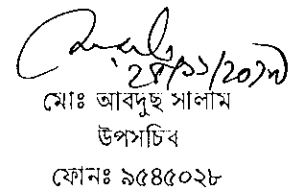 ২৪/১১/২০১৭
মোঃ আবদুছ সালাম
উপসচিব
ফোনঃ ৯৫৪৫০২৮